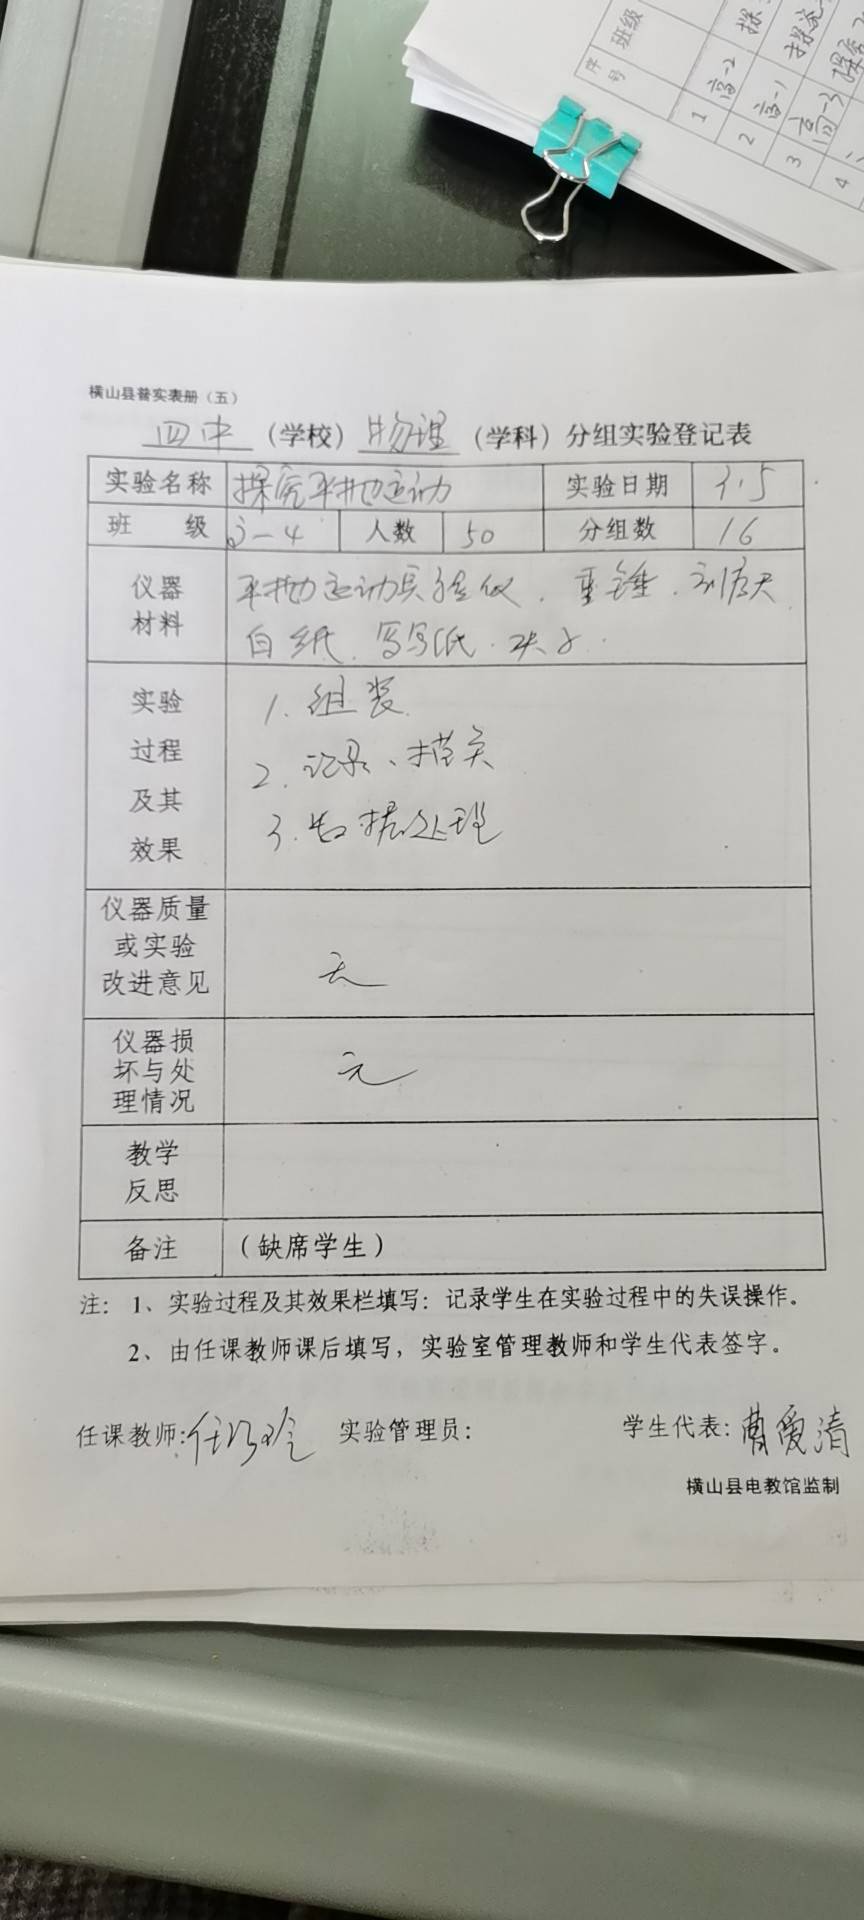 序号
班级
1
高一2
探
2
高一1
探究
3
高一3
探究
4
横山县普实表册（五）
四中（学校）物理（学科）分组实验登记表
实验名称 探究平抛运动 实验日期 3.5
班 级 高一4 人数 50 分组数 16
仪器材料 平抛运动实验仪．重锤．刻度尺
白纸．复写纸．夹子．
实验过程及其效果 1. 组装
2. 记录、描点
3. 数据处理
仪器质量或实验改进意见 无
仪器损坏与处理情况 无
教学反思
备注 （缺席学生）
注：1、实验过程及其效果栏填写：记录学生在实验过程中的失误操作。
2、由任课教师课后填写，实验室管理教师和学生代表签字。
任课教师： 实验管理员： 学生代表：曹爱清
横山县电教馆监制